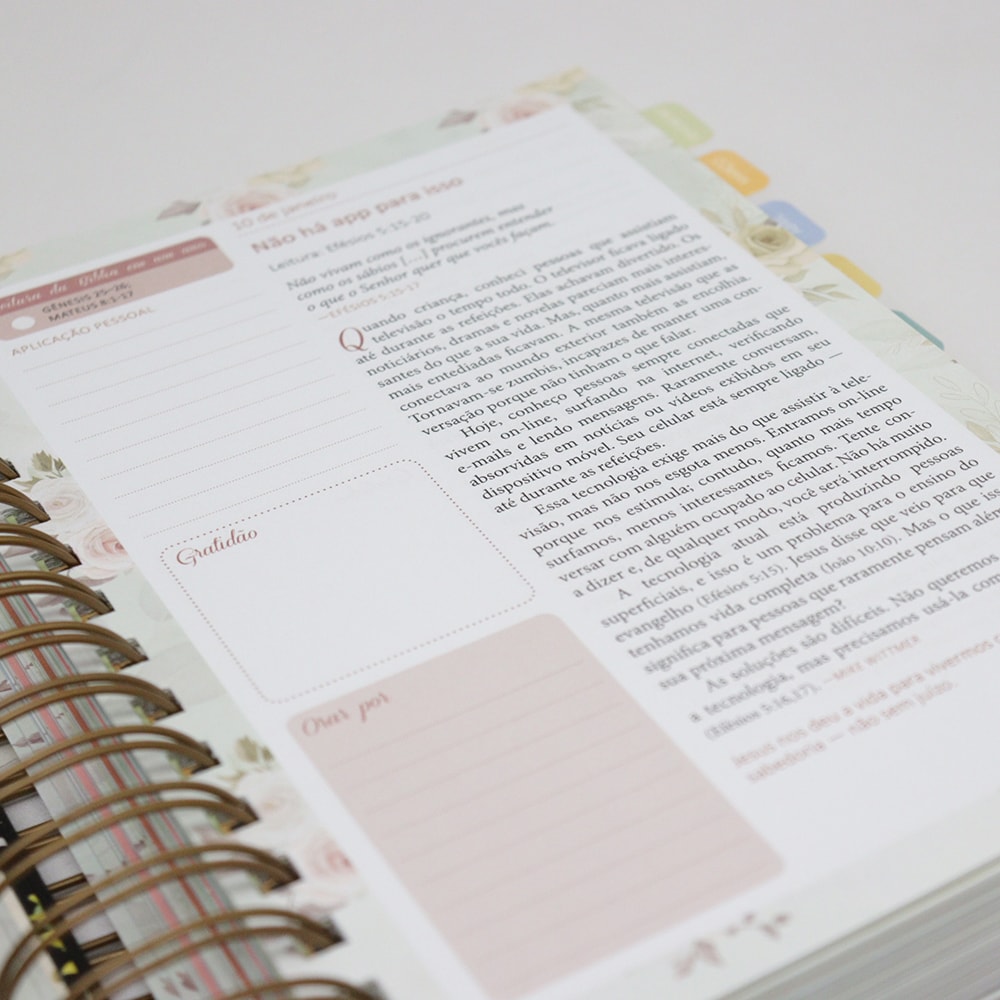 10 de janeiro
Não há app para isso
Leitura: Efésios 5:15-20
Não vivam como os ignorantes, mas
como os sábios [...] procurem entender
o que o Senhor quer que vocês façam.
—EFÉSIOS 5:15-17
Quando criança, conheci pessoas que assistiam
televisão o tempo todo. O televisor ficava ligado
até durante as refeições. Elas achavam divertido. Os
noticiários, dramas e novelas pareciam mais interes-
santes do que a sua vida. Mas, quanto mais assistiam,
mais entediadas ficavam. A mesma televisão que as
conectava ao mundo exterior também as encolhia.
Tornavam-se zumbis, incapazes de manter uma con-
versação porque não tinham o que falar.
Hoje, conheço pessoas sempre conectadas que
vivem on-line, surfando na internet, verificando
e-mails e lendo mensagens. Raramente conversam,
absorvidas em notícias ou vídeos exibidos em seu
dispositivo móvel. Seu celular está sempre ligado —
até durante as refeições.
Essa tecnologia exige mais do que assistir à tele-
visão, mas não nos esgota menos. Entramos on-line
porque nos estimula; contudo, quanto mais tempo
surfamos, menos interessantes ficamos. Tente con-
versar com alguém ocupado ao celular. Não há muito
a dizer e, de qualquer modo, você será interrompido.
A tecnologia atual está produzindo pessoas
superficiais, e isso é um problema para o ensino do
evangelho (Efésios 5:15). Jesus disse que veio para que
tenhamos vida completa (João 10:10). Mas o que isso
significa para pessoas que raramente pensam além
sua próxima mensagem?
As soluções são difíceis. Não queremos
a tecnologia, mas precisamos usá-la com
(Efésios 5:16,17). —MIKE WITTMER
Jesus nos deu a vida para vivermos
sabedoria — não sem juízo.
Leitura da Bíblia em um ano
GÊNESIS 25–26;
MATEUS 8:1-17
APLICAÇÃO PESSOAL
Gratidão
Orar por